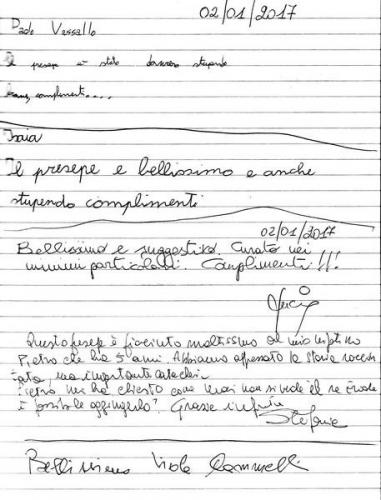 02/01/2017
Paolo Vassallo
Il presepe è stato davvero stupendo
complimenti....
Isaia
Il presepe e bellissimo e anche
stupendo complimenti
02/01/2017
Bellissimo e suggestivo. Curato nei
minimi particolari. Complimenti!!!
Questo presepe è piaciuto moltissimo al mio
Pietro che ha 5 anni. Abbiamo apprezzato la storia
ma
Pietro mi ha chiesto come mai non si vede il re Erode
è possibile aggiungerlo? Grazie
Stefania
Bellissimo Viola